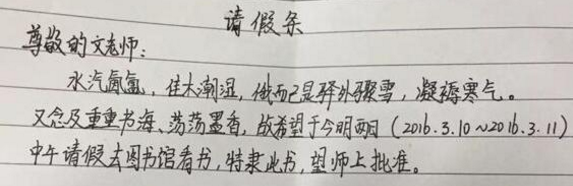 请假条
尊敬的文老师：
水汽氤氲，佳木潮湿，俄而已是驿外骤雪，凝褥寒气。
又念及重重书海、荡荡墨香，故希望于今明两日（2016.3.10～2016.3.11）
中午请假去图书馆看书，特隶此书，望师上批准。